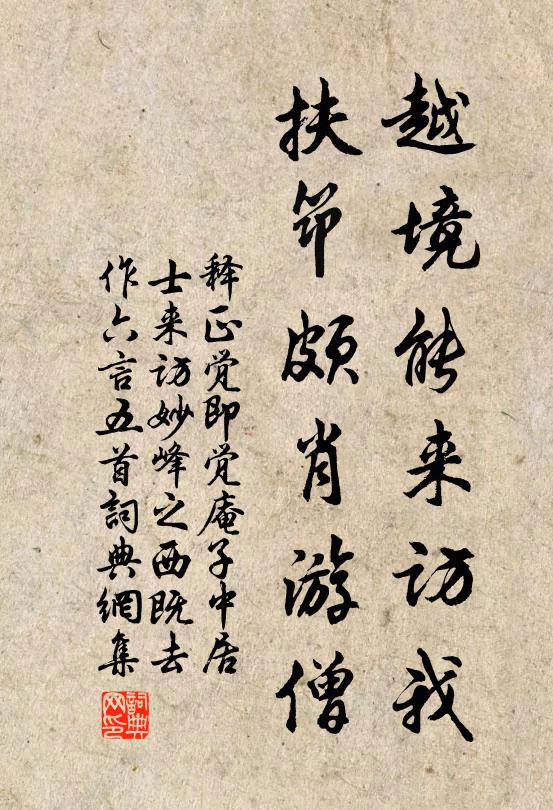 越境能来访我
扶筇颇肖游僧
释正觉即觉庵子中居
士来访妙峰之西既去
作六言五首詞典網集
詞典
网印